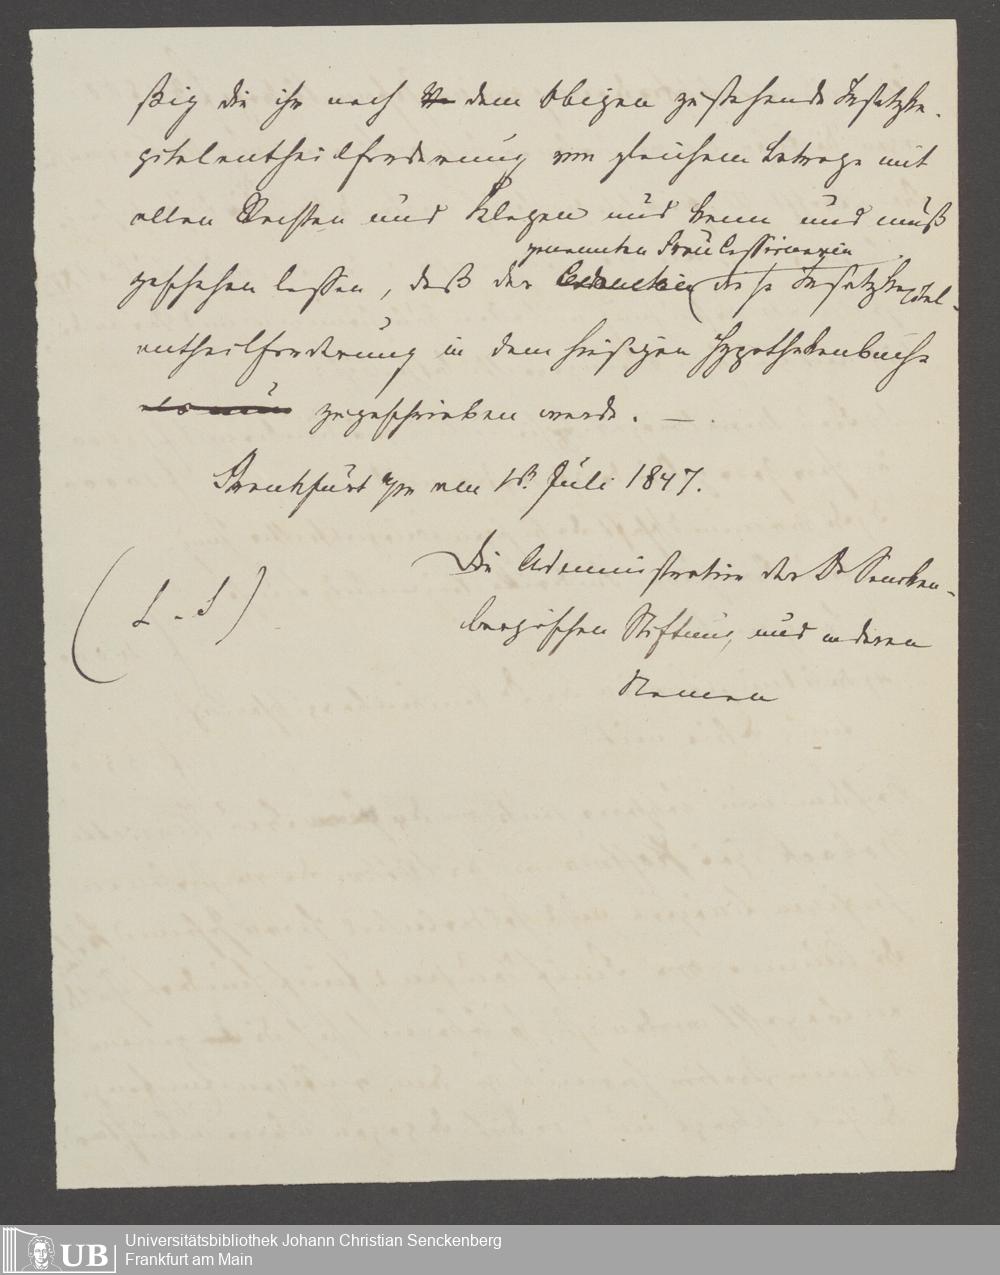 ßig die ihr nach dem Obigen zustehende Insatzka-
pitalantheilforderung von gleichem Betrage mit
allen Rechten und Klagen und kann und muß
genannten Frau Cessionarin
geschehen lassen, daß der Cedentin diese Insatzkapital-
antheilforderung in dem hiesigen Hypothekenbuche
als nun zugeschrieben werde. —
Frankfurt a/m den 18. Juli 1847.
Die Administration der Dr Sencken-
(L. S)
bergischen Stiftung, und in deren
Namen
Universitätsbibliothek Johann Christian Senckenberg
UB Frankfurt am Main